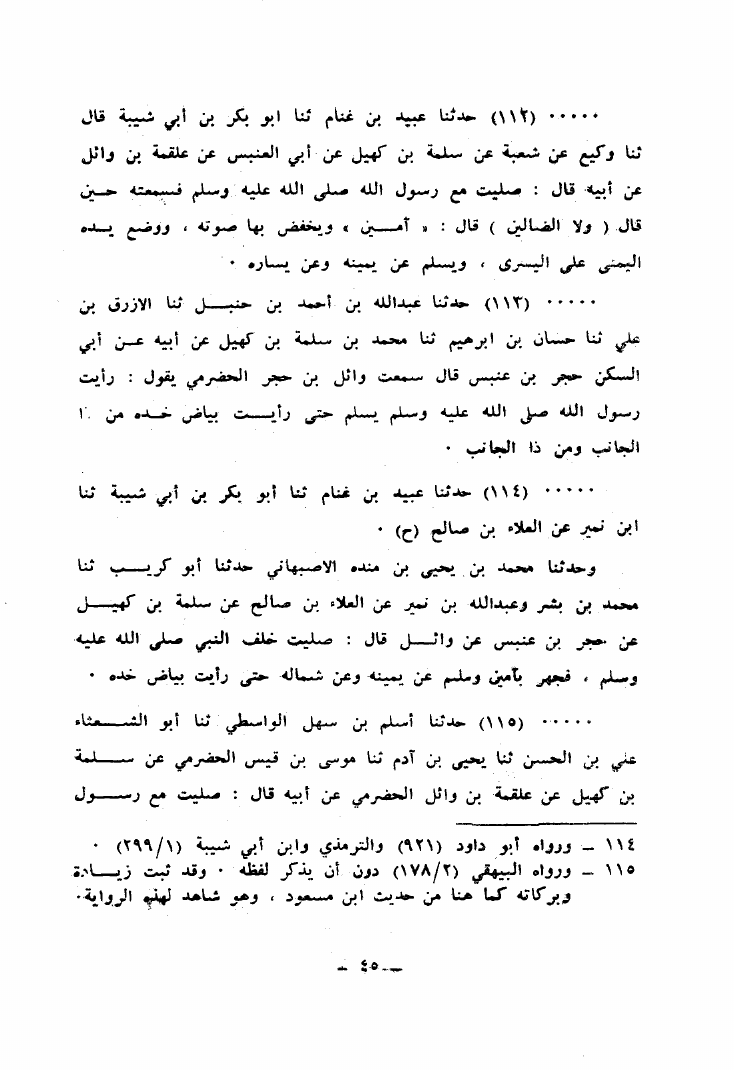 ٠٠٠٠٠ (١١٢) حدثنا عبيد بن غنام ثنا ابو بكر بن أبي شيبة قال
ثنا وكيع عن شعبة عن سلمة بن كهيل عن أبي العنبس عن علقمة بن وائل
عن أبيه قال : صليت مع رسول الله صلى الله عليه وسلم فسمعته حين
قال ( ولا الضالين ) قال : « آمين » ويخفض بها صوته ، ووضع يده
اليمنى على اليسرى ، ويسلم عن يمينه وعن يساره ٠
٠٠٠٠٠ (١١٣) حدثنا عبدالله بن أحمد بن حنبل ثنا الازرق بن
علي ثنا حسان بن ابرهيم ثنا محمد بن سلمة بن كهيل عن أبيه عن أبي
السكن حجر بن عنبس قال سمعت وائل بن حجر الحضرمي يقول : رأيت
رسول الله صلى الله عليه وسلم يسلم حتى رأيت بياض خده من
الجانب ومن ذا الجانب ٠
٠٠٠٠٠ (١١٤) حدثنا عبيد بن غنام ثنا أبو بكر بن أبي شيبة ثنا
ابن نمير عن العلاء بن صالح (ح) ٠
وحدثنا محمد بن يحيى بن منده الاصبهاني حدثنا أبو كريب ثنا
محمد بن بشر وعبدالله بن نمير عن العلاء بن صالح عن سلمة بن كهيل
عن حجر بن عنبس عن وائل قال : صليت خلف النبي صلى الله عليه
وسلم ، فجهر بآمين وسلم عن يمينه وعن شماله حتى رأيت بياض خده ٠
٠٠٠٠٠ (١١٥) حدثنا أسلم بن سهل الواسطي ثنا أبو الشعثاء
علي بن الحسن ثنا يحيى بن آدم ثنا موسى بن قيس الحضرمي عن سلمة
بن كهيل عن علقمة بن وائل الحضرمي عن أبيه قال : صليت مع رسول
١١٤ – ورواه أبو داود (٩٢١) والترمذي وابن أبي شيبة (٢٩٩/١) ٠
١١٥ – ورواه البيهقي (١٧٨/٢) دون أن يذكر لفظه ٠ وقد ثبت زيادة
وبركاته كما هنا من حديث ابن مسعود ، وهو شاهد لهذه الرواية٠
– ٤٥ –